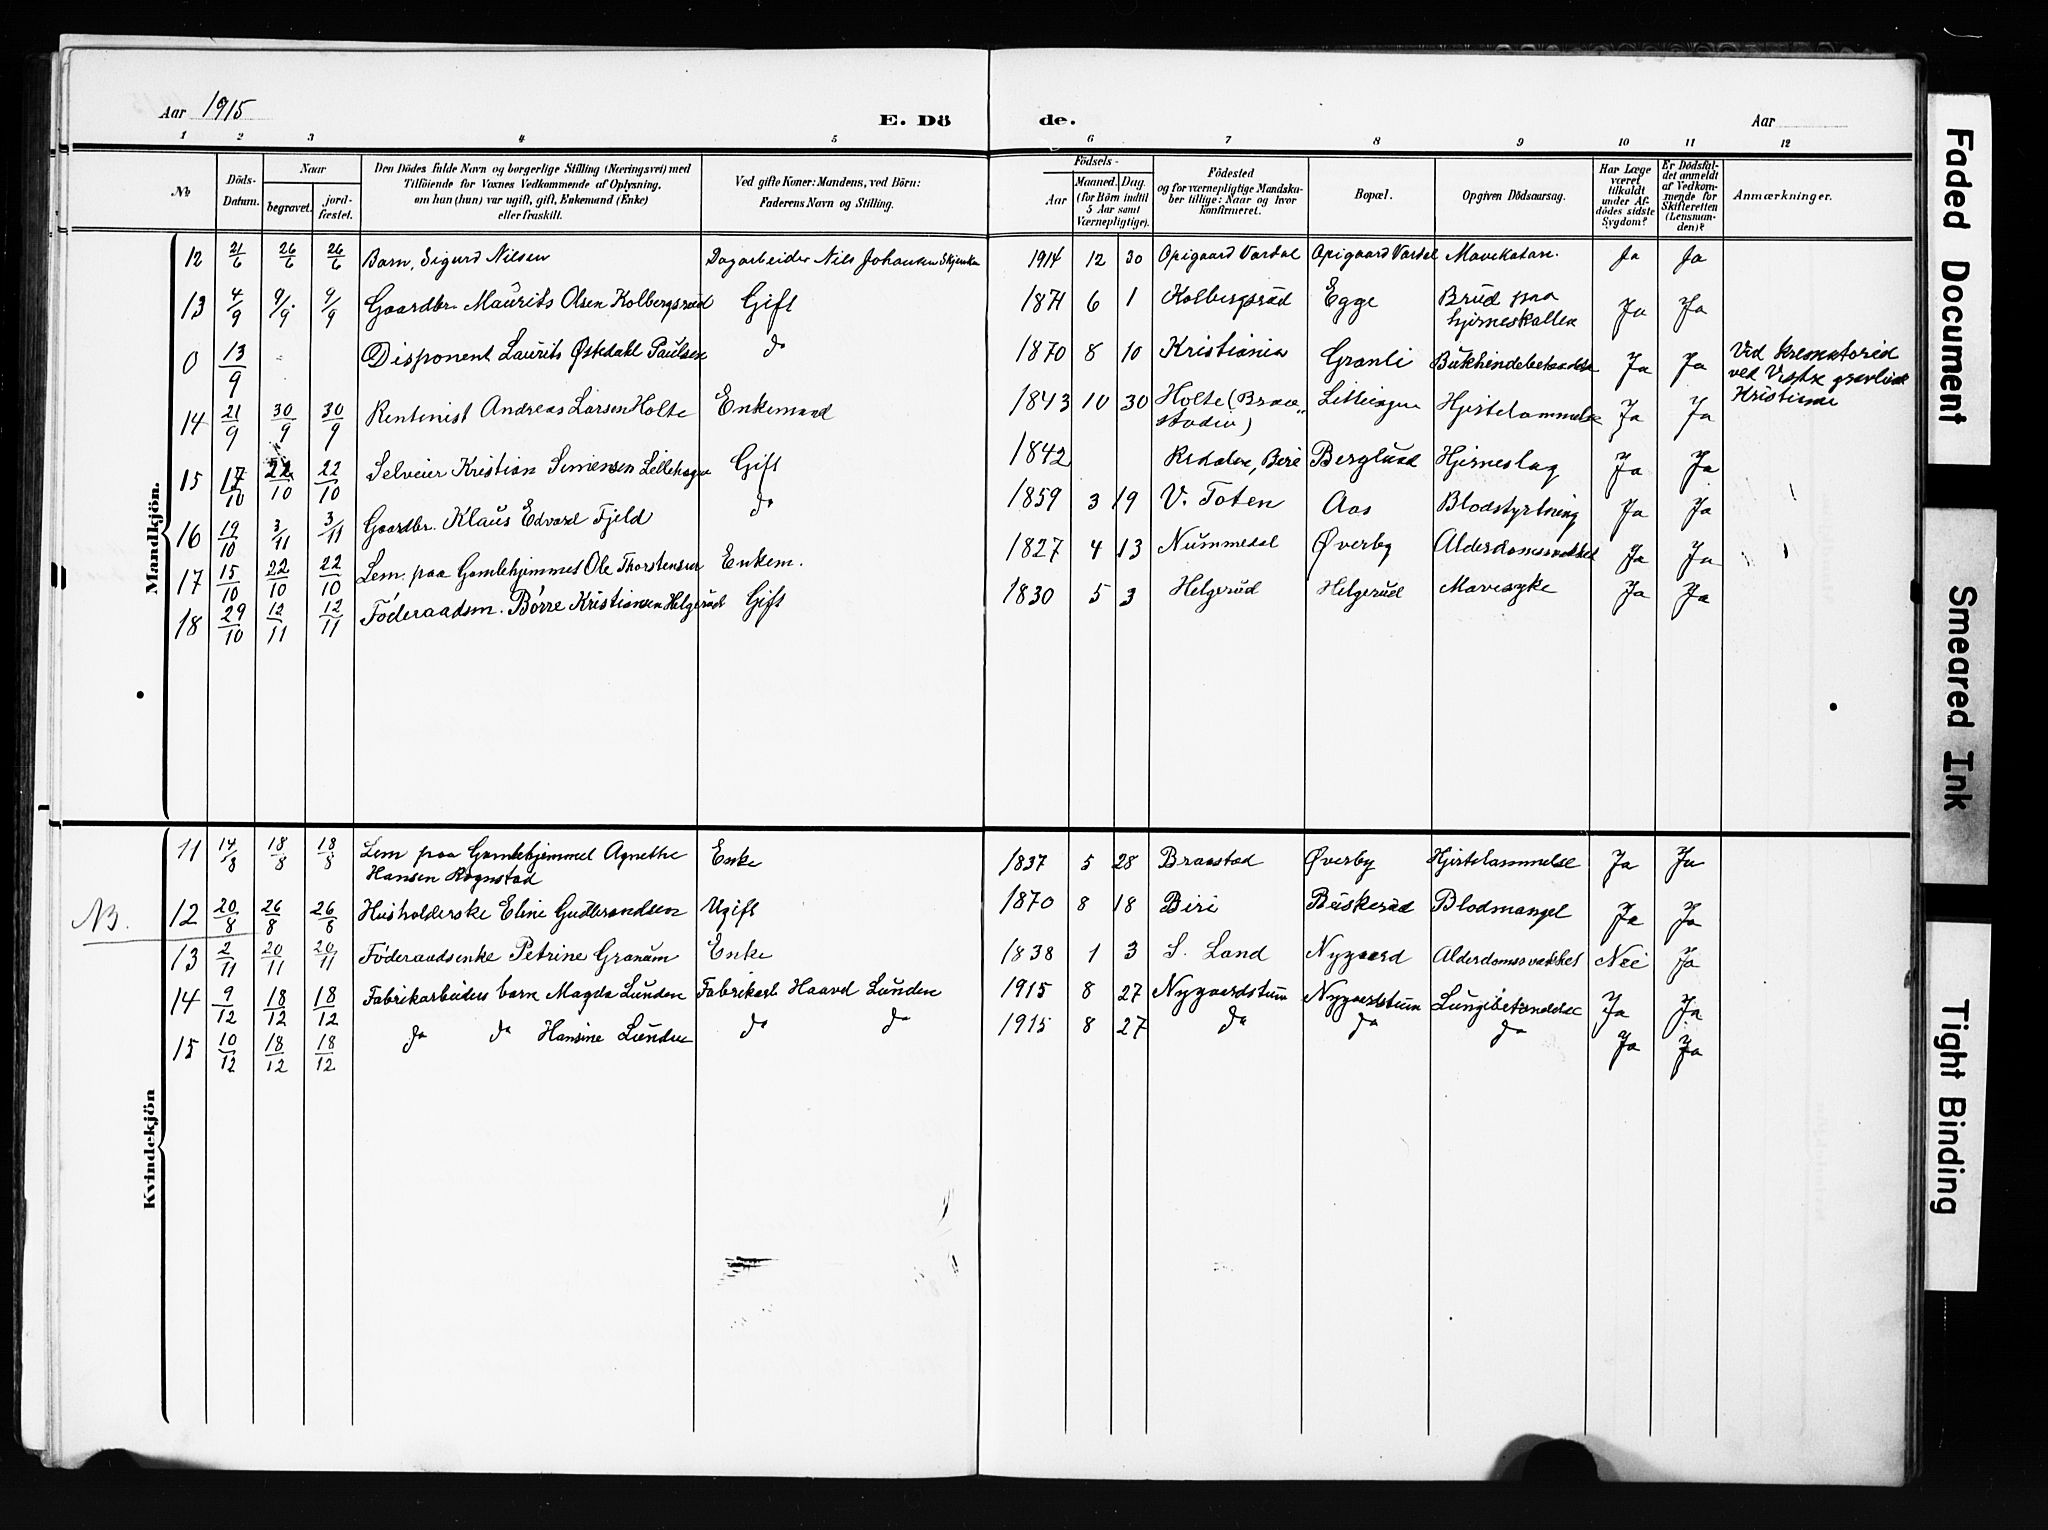 Aar 1915
E. Dö de.
Aar
1 2 3 4 5 6 7 8 9 10 11 12
No
Döds-Datum.
Naar
begravet.
jord-fæstet.
Den Dödes fulde Navn og borgerlige Stilling (Næringsvei) med
Tilföiende for Voxnes Vedkommende af Oplysning,
om han (hun) var ugift, gift, Enkemand (Enke)
eller fraskilt.
Ved gifte Koner: Mandens, ved Börn:
Faderens Navn og Stilling.
Födsels-
Aar
Maaned. Dag.
(for Börn indtil
5 Aar samt
Værnepligtige).
Födested
og for værnepligtige Mandska-
ber tillige: Naar og hvor
Konfirmeret.
Bopæl.
Opgiven Dödsaarsag.
Har Læge
været
tilkaldt
under Af-
dödes sidste
Sygdom?
Er Dödsfal-
det anmeldt
af Vedkom-
mende for
Skifteretten
(Lensman-
den)?
Anmærkninger.
Mandkjön.
12 21/6 26/6 26/6 Barn, Sigurd Nilsen Dagarbeider Nils Johansen Skjenken 1914 12 30 Opigaard Vardal Opigaard Vardal Mavekatarr. Ja Ja
13 4/9 9/9 9/9 Gaardbr. Maurits Olsen Kolbergsrud Gift 1871 6 1 Kolbergsrud Egge Brud paa
hjerneskallen Ja Ja
0 13/9 Disponent Laurits Østedahl Paulsen do 1870 8 10 Kristiania Granli Bukhindebetændelse Ja Ja Ved krematoriet
ved Vestre gravlund
Kristiania
14 21/9 30/9 30/9 Rentenist Andreas Larsen Holte Enkemand 1843 10 30 Holte (Braa-
stadeie) Hjertelammelse Ja Ja
15 17/10 22/10 22/10 Selveier Kristian Simensen Lillehagen Gift 1842 Redalen, Biri Berglund Hjerneslag Ja Ja
16 19/10 3/11 3/11 Gaardbr. Klaus Edvard Fjeld do 1859 3 19 V. Toten Aas Blodstyrtning Ja Ja
17 15/10 22/10 22/10 Lem paa Gamlehjemmet Ole Thorstensen Enkem. 1827 4 13 Nummedal Øverby Alderdomssvakhet Ja Ja
18 29/10 12/11 12/11 Föderaadsm. Børre Kristiansen Helgerud Gift 1830 5 3 Helgerud Helgerud Mavesyke Ja Ja
Kvindekjön
11 14/8 18/8 18/8 Lem paa Gamlehjemmet Agnethe
Hansen Rognstad Enke 1837 5 28 Braastad Øverby Hjertelammelse Ja Ja
NB. 12 20/8 26/8 26/8 Husholderske Eline Gudbrandsen Ugift 1870 8 18 Biri Buskerud Blodmangel Ja Ja
13 2/11 20/11 20/11 Föderaadsenke Petrine Granum Enke 1838 1 3 S. Land Nygaard Alderdomssvakhet Nei Ja
14 9/12 18/12 18/12 Fabrikarbeiders barn Magda Lunden Fabrikarb. Haavd Lunden 1915 8 27 Nygaardstuen Nygaardstuen Lungebetændelse Ja Ja
15 10/12 18/12 18/12 do do Hansine Lunden do do 1915 8 27 do do do Ja Ja
Faded Document
Smeared Ink
Tight Binding